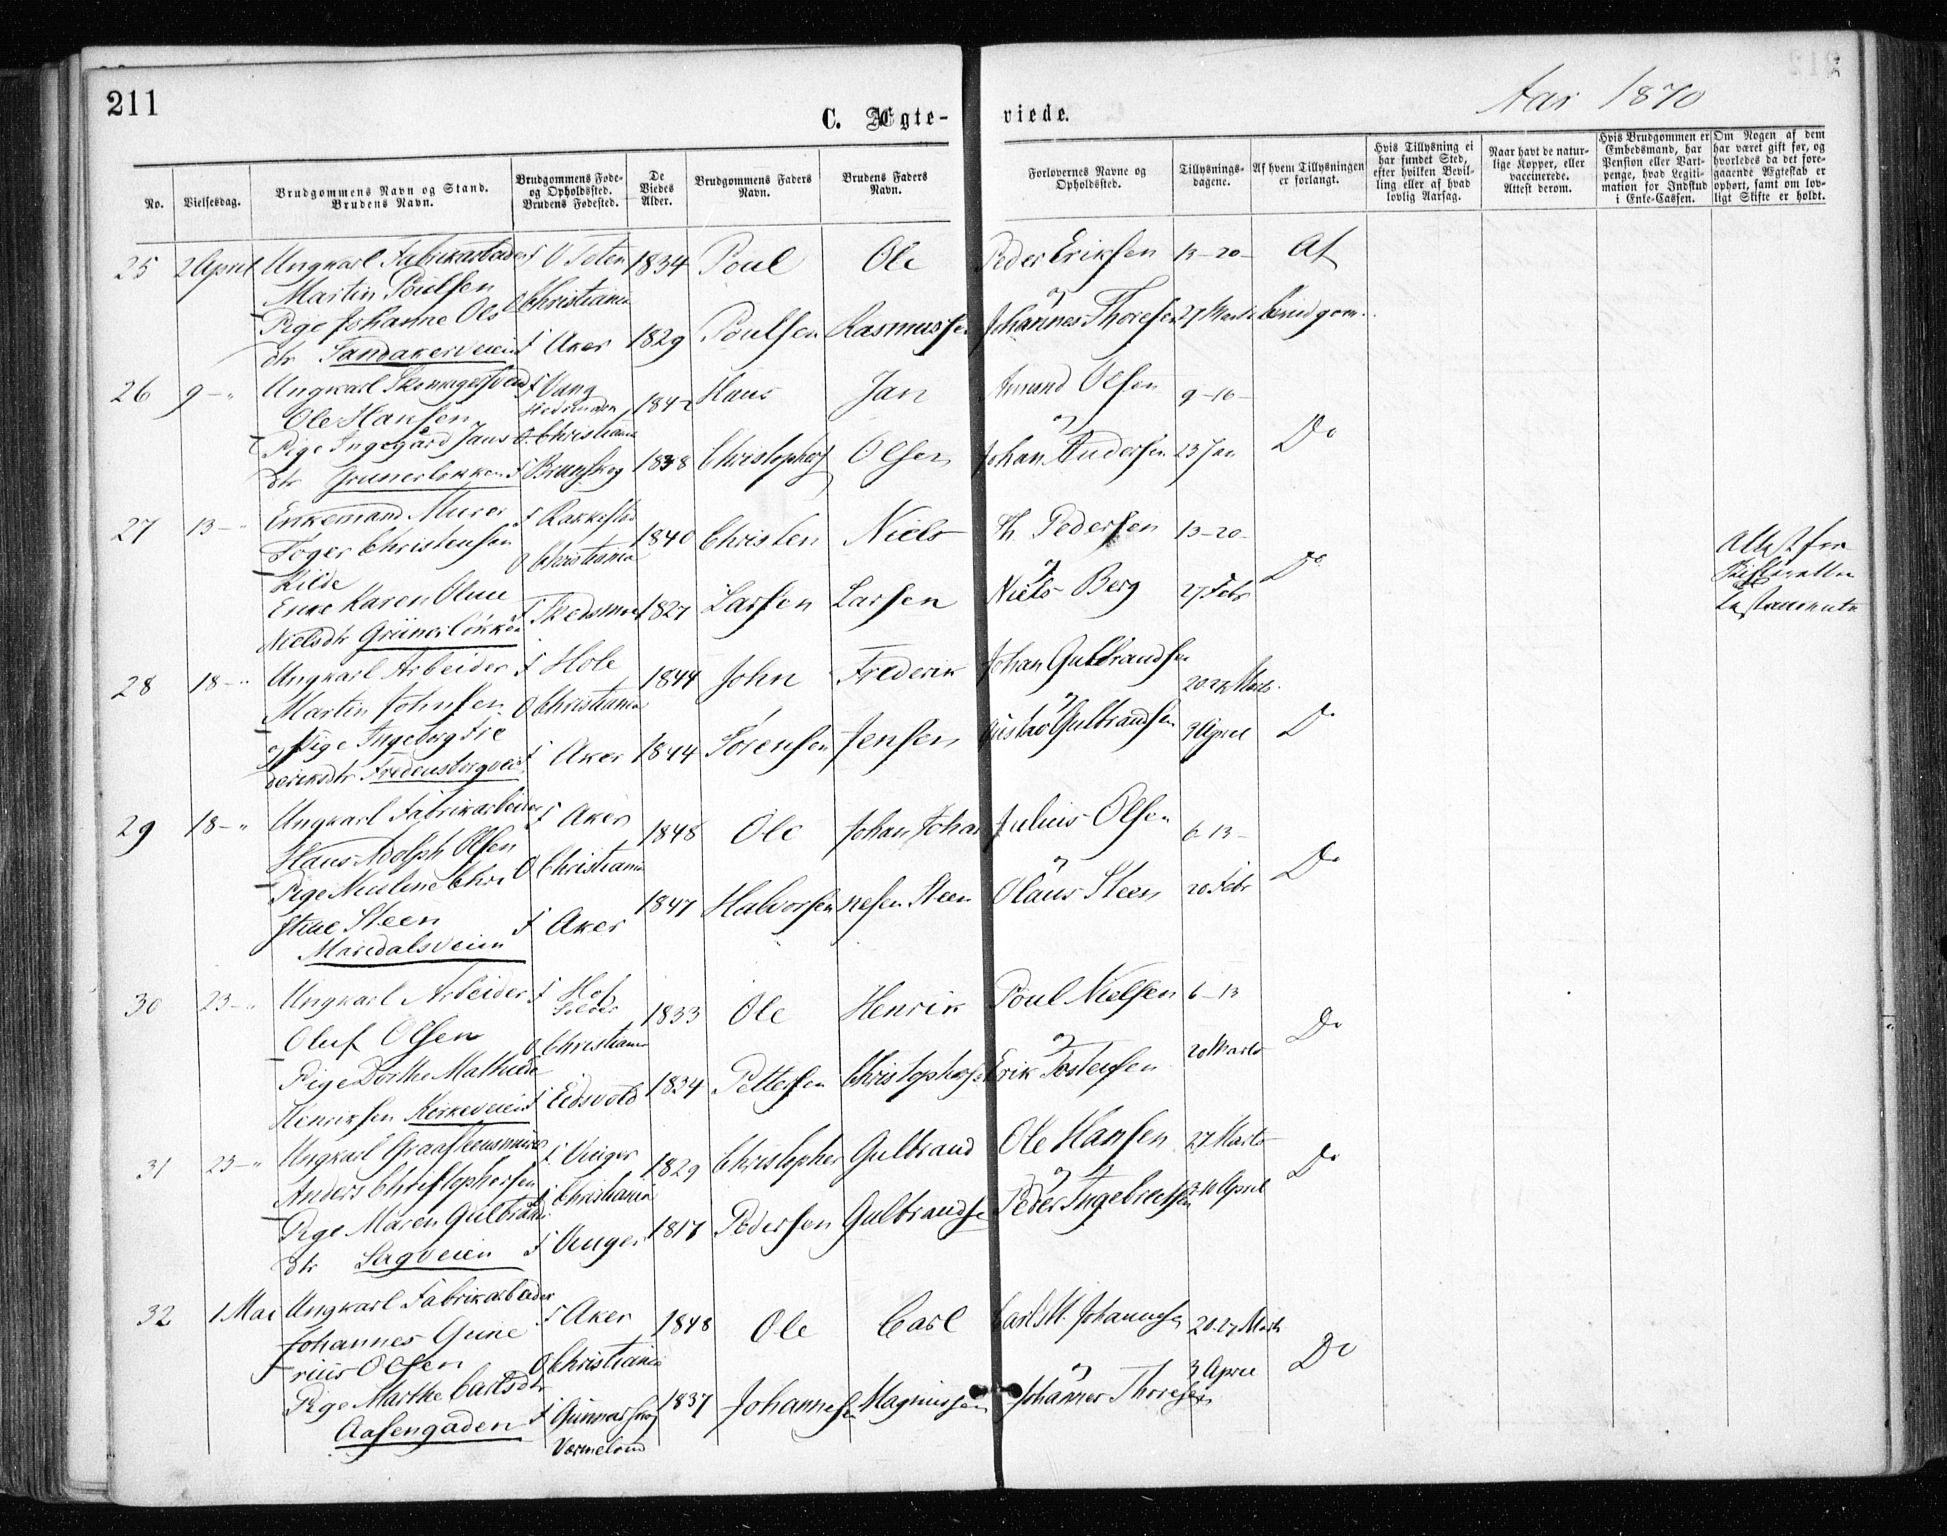 211
C. Ægte-
viede.
Aar 1870
No.
Vielsesdag.
Brudgommens Navn og Stand.
Brudens Navn.
Brudgommens Føde-
og Opholdssted.
Brudens Fødested.
De
Viedes
Alder.
Brudgommens Faders
Navn.
Brudens Faders
Navn.
Forlovernes Navne og
Opholdssted.
Tillysnings-
dagene.
Af hvem Tillysningen
er forlangt.
Hvis Tillysning ei
har fundet Sted,
efter hvilken Bevil-
ling eller af hvad
lovlig Aarsag.
Naar havt de natur-
lige Kopper, eller
vaccinerede.
Attest derom.
Hvis Brudgommen er
Embedsmand, har
Pension eller Vart-
penge, hvad Legiti-
mation for Indskud
i Enke-Cassen.
Om Nogen af dem
har været gift før, og
hvorledes da det fore-
gaaende Ægteskab er
ophørt, samt om lov-
ligt Skifte er holdt.
25 2 April Ungkarl Fabrikarbeider F V Toten 1834 Poul Ole Peder Eriksen 13-20- Af
Martin Poulsen O Christiania og
Pige Johanne Ols
dtr Sandakerveien F Aker 1829 Poulsen Rasmussen Johannes Thoresen 27 Marts Brudgom.
26 9-" Ungkarl Skomagersvend F Vang 1842 Hans Jan Amund Olsen 9-16-
Ole Hansen Hedemarken og
Pige Ingegård Jans O Christiania
dtr Grunerløkken F Brunskog 1838 Christophers Olsen Johan Andersen 23 Jan Do
27 13-" Enkemand Murer F Rakkestad 1840 Christen Niels Th Pedersen 13-20-
Foger Christensen O Christiania og Do
Kilde
Enke Karen Oline F Skedsmo 1827 Larsen Larsen Niels Berg 27 Febr
Nielsdtr Grünerløkken
Attest fra
Skifteretten
28 18-" Ungkarl Arbeider F Hole 1844 John Frederik Johan Gulbrandsen 20 27 Marts
Martin Johnsen O Christiania og
og Pige Ingeborg Fre F Aker 1844 Sørensen Jensen Gustav Gulbrandsen 3 April Do
deriksdtr Fredensborgveien
29 18-" Ungkarl Fabrikarbeider F Aker 1848 Ole Johan Johan Julius Olsen 6-13-
Hans Adolph Olsen O Christiania og Do
Pige Nicoline Chri
stine Steen F Aker 1847 Halvorsen nesen Steen Olaus Steen 20 Febr
Maridalsveien
30 23-" Ungkarl Arbeider F Hof 1833 Ole Henrik Poul Nielsen 6-13
Oluf Olsen Solør og Do
Pige Dorthe Mathilde O Christiania 20 Marts
Henriksen Kirkeveien F Eidsvold 1834 Pettersen Christophersen Erik Tostensen
31 23-" Ungkarl Graastensmurer F Vinger 1829 Christopher Gulbrand Ole Hansen 27 Marts
Anders Christophersen O Christiania og Do
Pige Maren Gulbrands F Vinger 1817 Pedersen Gulbrandsen Peder Ingebretsen 3-10 April
dtr Sagveien
32 1 Mai Ungkarl Fabrikarbeider F Aker 1848 Ole Carl Carl M. Johannesen 20.27 Marts
Johannes Gune
rius Olsen O Christiania og 3 April Do
Pige Marthe Carlsdtr F Gunnarskog 1837 Johannesen Magnussen Johannes Thoresen
Aasengaden Værmeland